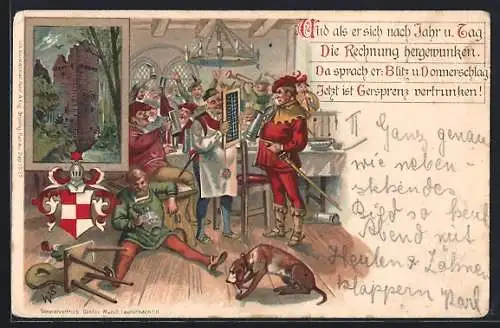 Und als er sich nach Jahr u. Tag
Die Rechnung hergewunken.
Da sprach er: Blitz u. Donnerschlag
Jetzt ist Gersprenz vertrunken!
II Ganz genau
wie neben-
stehendes
Bild so heut
Abend mit
Heulen & Zähne
klappern Karl